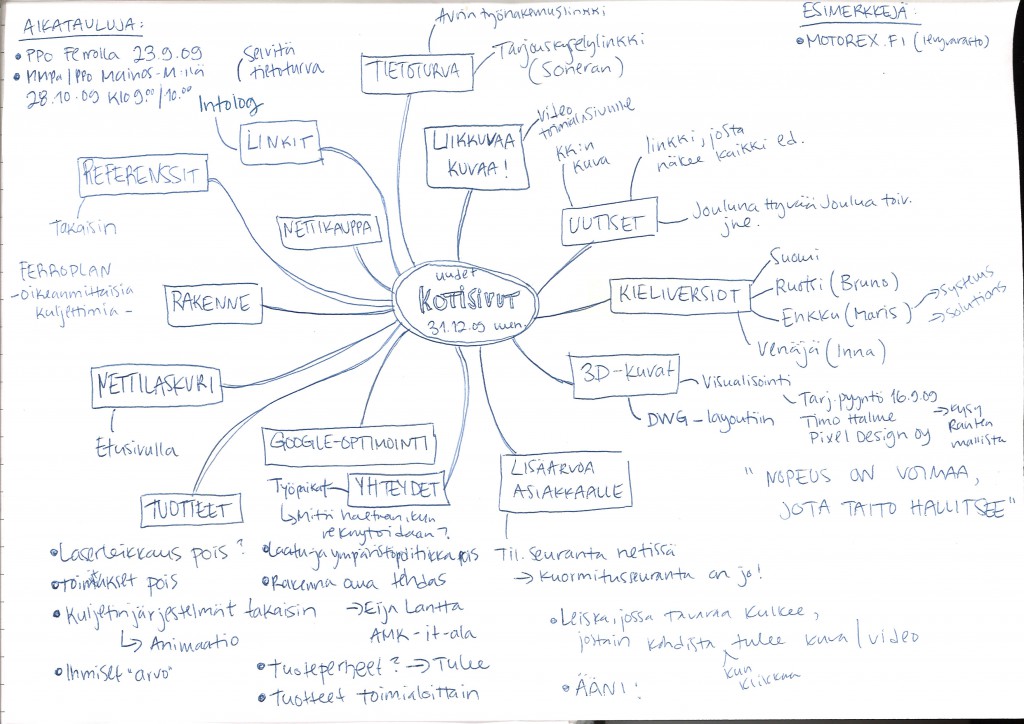 AIKATAULUJA:
• PPO Ferrolla 23.9.09
• MMPa/PPO Mainos-M:llä
28.10.09 klo 9.00/10.00
Selvitä
tietoturva
Intolog
LINKIT
REFERENSSIT
Takaisin
NETTIKAUPPA
FERROPLAN
- Oikeanmittaisia
kuljettimia -
RAKENNE
NETTILASKURI
Etusivulla
TIETOTURVA
Tarjouskyselylinkki
(Soneran)
LIIKKUVAA
KUVAA!
video
toimialasivuille
ESIMERKKEJÄ:
• MOTOREX.FI (levyvarasto)
KK:n
kuva
linkki, josta
näkee kaikki ed.
UUTISET
Jouluna Hyvää Joulua toiv.
jne.
uudet
KOTISIVUT
31.12.09 men.
KIELIVERSIOT
Suomi
Ruotsi (Bruno)
Enkku (Maris)
→ Systems
→ Solutions
Venäjä (Inna)
3D-kuvat
Visualisointi
Tarj.pyyntö 16.9.09
Timo Halme
Pixel Design Oy
→ kysy
mallista
DWG-layoutiin
"NOPEUS ON VOIMAA,
JOTA TAITO HALLITSEE"
GOOGLE-OPTIMOINTI
Työpaikat
YHTEYDET
↳ Mitä haetaan, kun
rekrytoidaan?
LISÄARVOA
ASIAKKAALLE
Til.seuranta netissä
→ Kuormitusseuranta on jo!
TUOTTEET
• Laserleikkaus pois?
• Toimitukset pois
• Kuljetinjärjestelmät takaisin
↳ Animaatio
• Ihmiset "arvo"
• Laatu- ja ympäristöpolitiikka pois
• Rakenna oma tehdas
→ Eija Lantta
AMK-it-ala
• Tuoteperheet? → Tulee
• Tuotteet toimialoittain
• Leiska, jossa tavaraa kulkee,
jostain kohdista tulee kuva/video
kun
klikkaa
• ÄÄNI!